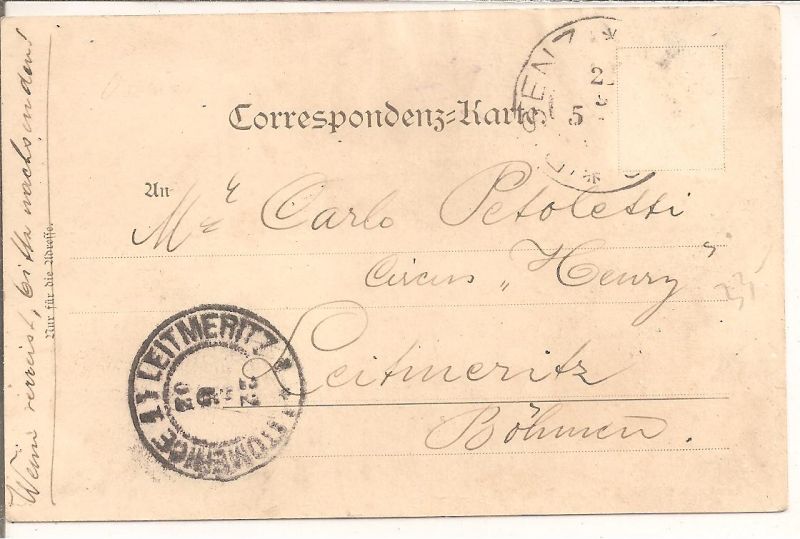 Correspondenz-Karte.
An
Mr Carlo Petoletti
Circus „Henry"
Leitmeritz
Böhmen.
Nur für die Adresse.
Wenn verreist, bitte nachsenden!
LEITMERITZ 1
LITOMĚŘICE 1
22
5
03
5